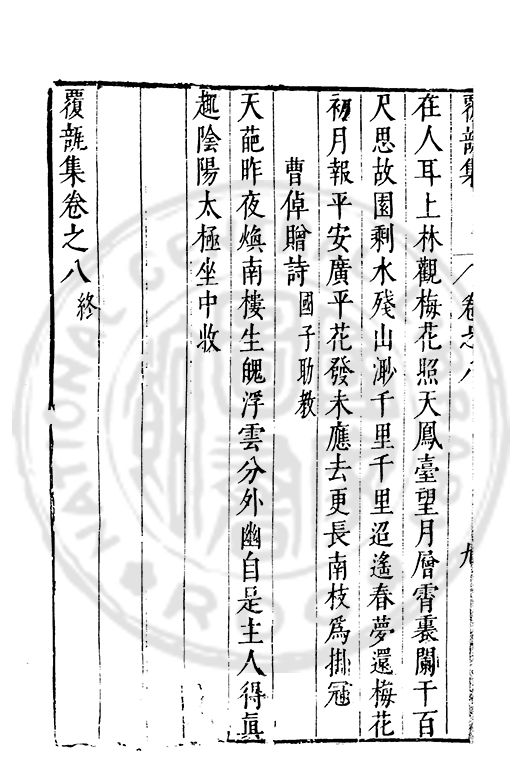 覆瓿集 卷之八 九
在人耳上林觀梅花照天鳳臺望月層霄裏闌干百
尺思故園剩水殘山渺千里千里迢遙春夢還梅花
初月報平安廣平花發未應去更長南枝為掛冠
曹倬贈詩 國子助教
天葩昨夜煥南樓生䰟浮雲分外幽自是主人得眞
趣陰陽太極坐中收
覆瓿集卷之八 終